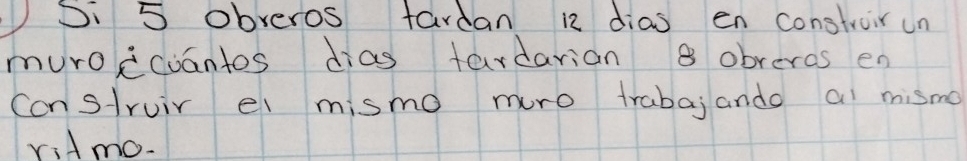 ) Si 5 obreros tardan 12 dias en construir un
muro ¿cuántos dias tardarian 8 obreros en
construir el mismo muro trabajando al mismo
ritmo.